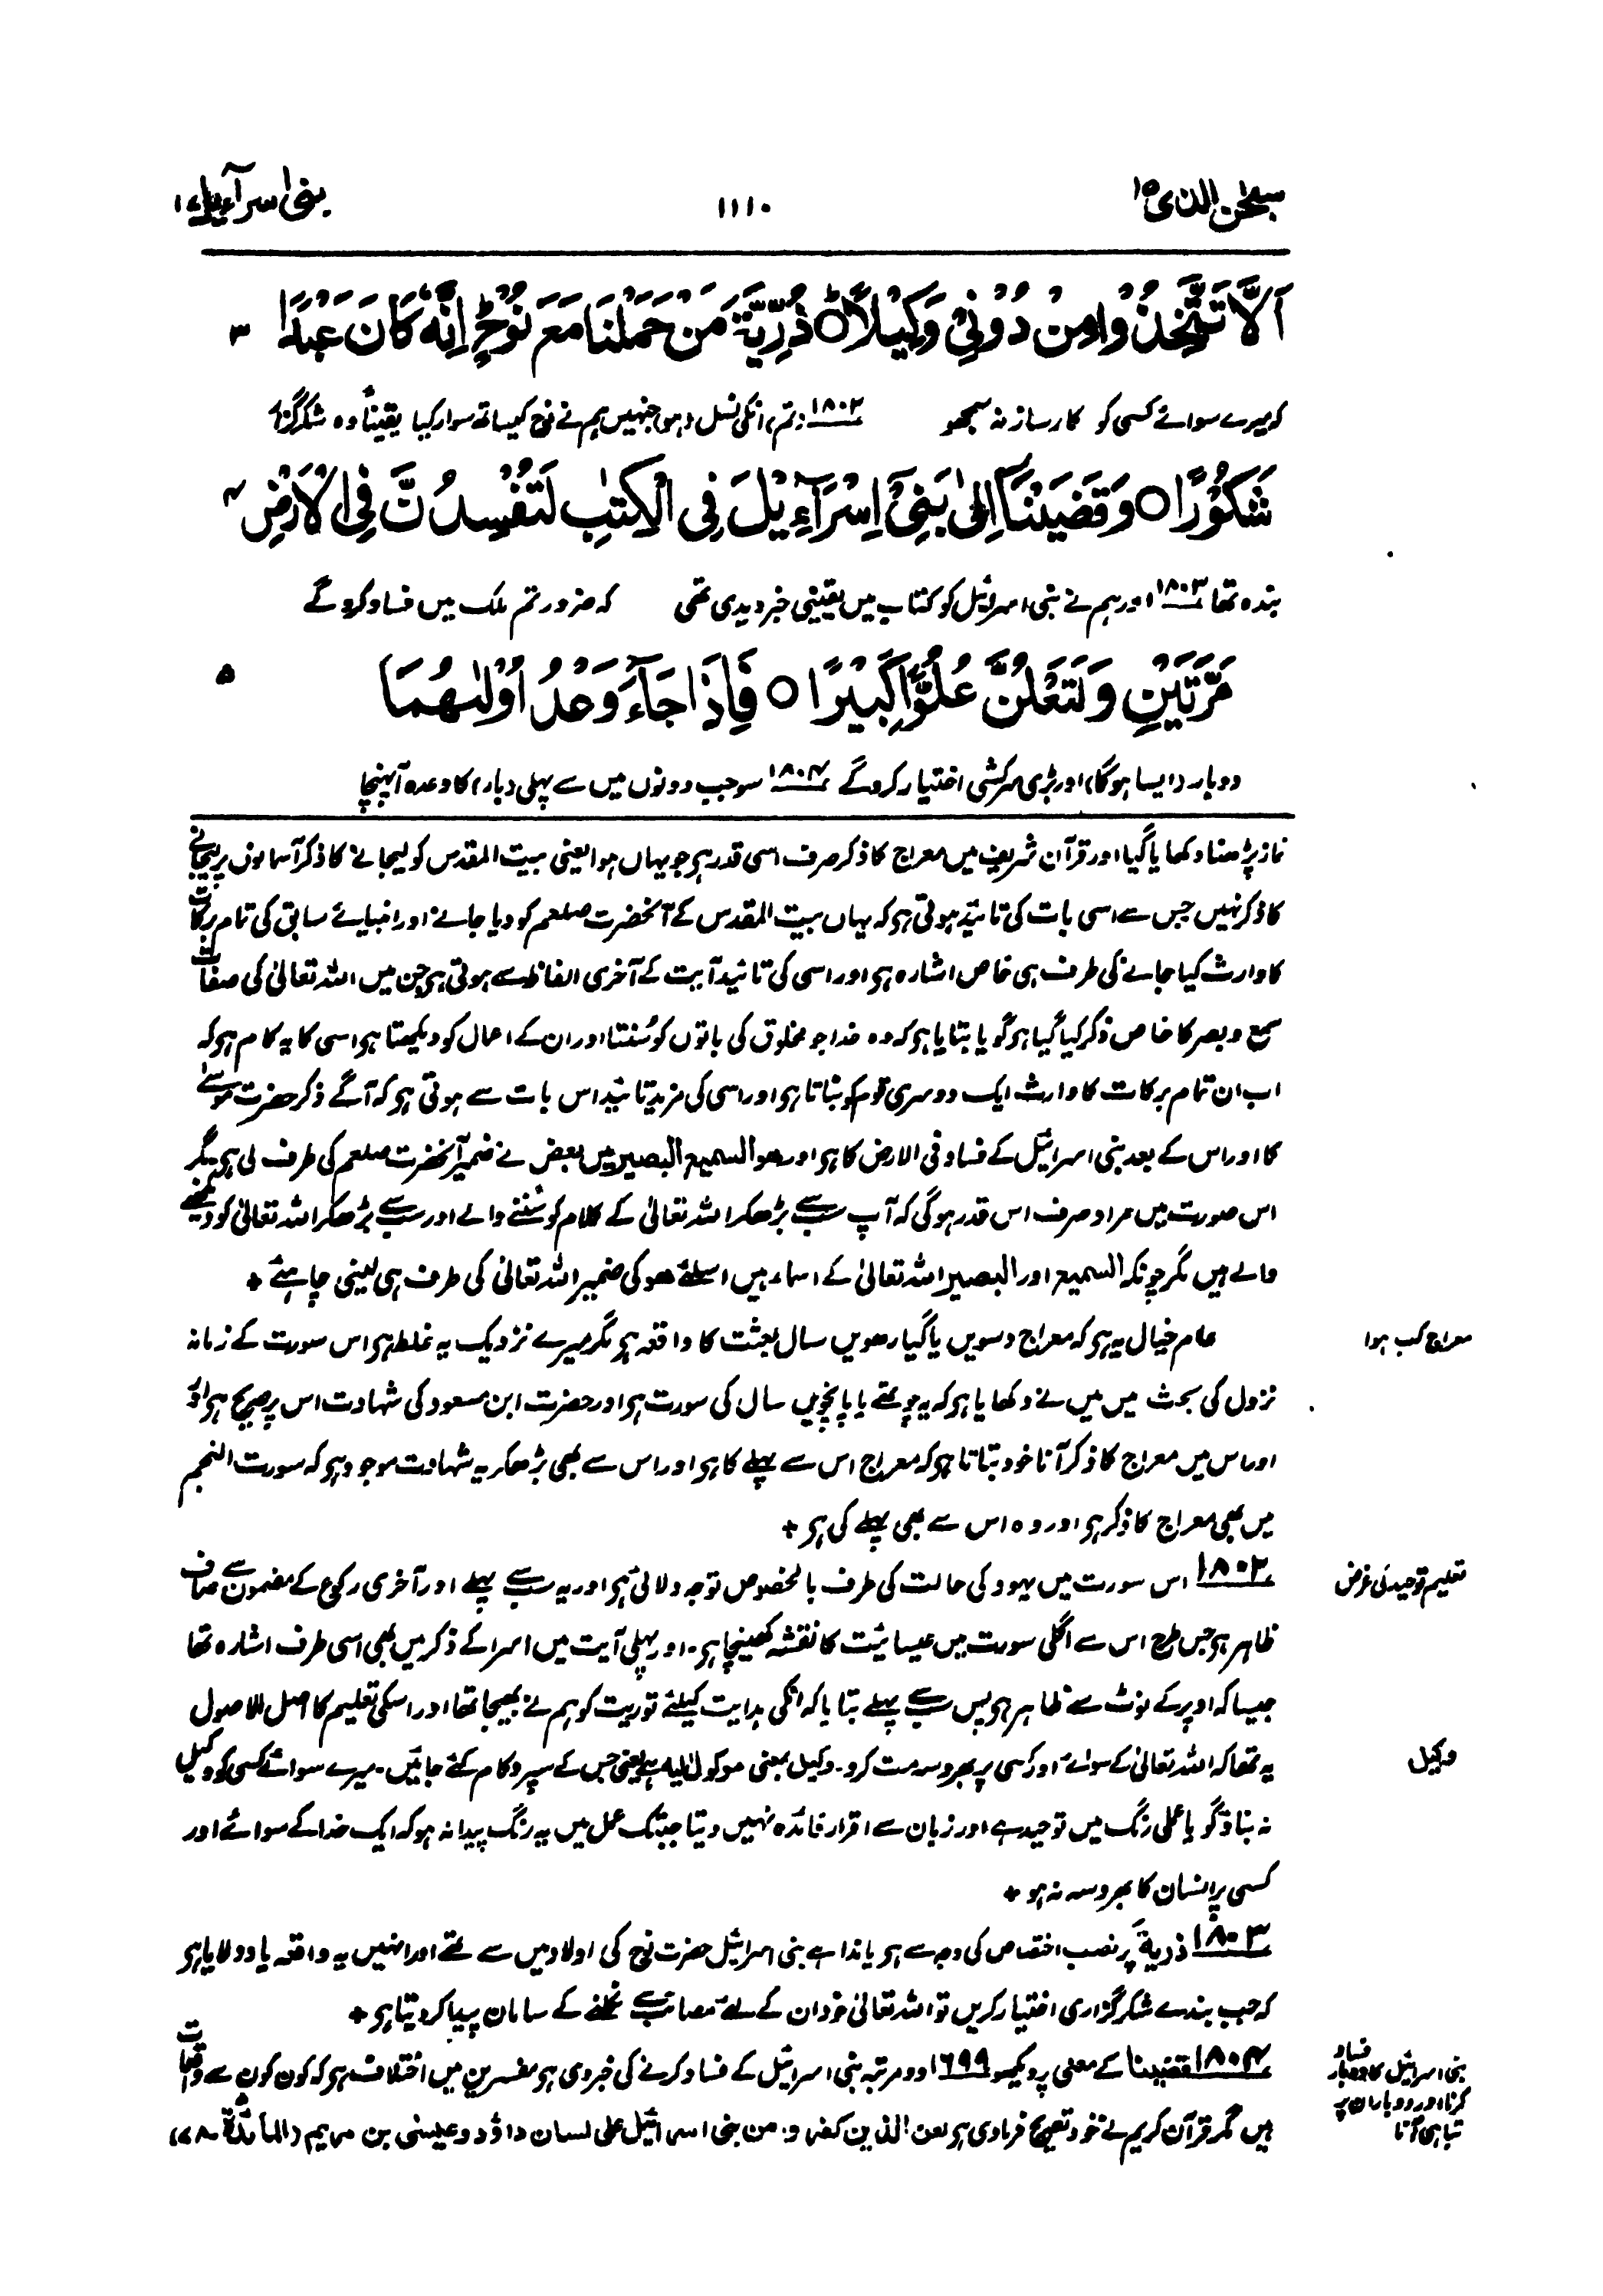 سبحٰن الذی ۱۵
۱۱۱۰
بنی اسرآءیل ۱۷
اَلَّا تَتَّخِذُوْا مِنْ دُوْنِیْ وَكِیْلًا ○ ذُرِّیَّةَ مَنْ حَمَلْنَا مَعَ نُوْحٍ اِنَّهٗ كَانَ عَبْدًا ۳
کہ میرے سوائے کسی کو کارساز نہ سمجھو ۱۸۰۲ (تم) انکی نسل (ہو) جنہیں ہم نے نوح کیساتھ سوار کیا یقیناً وہ شکرگزار
شَكُوْرًا ○ وَقَضَیْنَآ اِلٰی بَنِیْٓ اِسْرَآءِیْلَ فِی الْكِتٰبِ لَتُفْسِدُنَّ فِی الْاَرْضِ ۴
بندہ تھا ۱۸۰۳ اور ہم نے بنی اسرائیل کو کتاب میں یقینی خبر دیدی تھی کہ ضرور تم ملک میں فساد کروگے
مَرَّتَیْنِ وَلَتَعْلُنَّ عُلُوًّا كَبِیْرًا ○ فَاِذَا جَآءَ وَعْدُ اُوْلٰىهُمَا ۵
دو بار (ایسا ہوگا) اور بڑی سرکشی اختیار کروگے ۱۸۰۴ سو جب دونوں میں سے پہلی (بار) کا وعدہ آپہنچا
نماز پڑھنا دکھایا گیا اور قرآن شریف میں معراج کا ذکر صرف اسی قدر ہو جو یہاں ہوا یعنی بیت المقدس کو لیجانے کا ذکر آسمانوں پر لیجانے
کا ذکر نہیں جس سے اسی بات کی تائید ہوتی ہو کہ یہاں بیت المقدس کے آنحضرت صلعم کو دیا جانے اور انبیائے سابق کی تمام برکات
کا وارث کیا جانے کی طرف ہی خاص اشارہ ہو اور اسی کی تائید آیت کے آخری الفاظ سے ہوتی ہو جن میں اللہ تعالیٰ کی صفات
سمع و بصر کا خاص ذکر کیا گیا ہو گویا بتایا ہو کہ وہ خدا جو مخلوق کی باتوں کو سُنتا اور ان کے اعمال کو دیکھتا ہو اسی کا یہ کام ہو کہ
اب ان تمام برکات کا وارث ایک دوسری قوم کو بناتا ہو اور اسی کی مزید تائید اس بات سے ہوتی ہو کہ آگے ذکر حضرت موسےٰ
کا اور اس کے بعد بنی اسرائیل کے فساد فی الارض کا ہو اور ھو السمیع البصیر میں بعض نے ضمیر آنحضرت صلعم کی طرف لی ہو مگر
اس صورت میں مراد صرف اس قدر ہوگی کہ آپ سب سے بڑھکر اللہ تعالیٰ کے کلام کو سُننے والے اور سب سے بڑھکر اللہ تعالیٰ کو دیکھنے
والے ہیں مگر چونکہ السمیع اور البصیر اللہ تعالیٰ کے اسماء ہیں اسلئے ھو کی ضمیر اللہ تعالیٰ کی طرف ہی لینی چاہئے +
معراج کب ہوا
عام خیال یہ ہو کہ معراج دسویں یا گیارھویں سال بعثت کا واقعہ ہو مگر میرے نزدیک یہ غلط ہو اس سورت کے زمانہ
نزول کی بحث میں میں نے دکھایا ہو کہ یہ چوتھے یا پانچویں سال کی سورت ہو اور حضرت ابن مسعود کی شہادت اس پر صریح ہو اور
اور اس میں معراج کا ذکر آنا خود بتاتا ہو کہ معراج اس سے پہلے کا ہو اور اس سے بھی بڑھکر یہ شہادت موجود ہو کہ سورت النجم
میں بھی معراج کا ذکر ہو اور وہ اس سے بھی پہلے کی ہو +
تعلیم توحید کی غرض
۱۸۰۲ اس سورت میں یہود کی حالت کی طرف بالخصوص توجہ دلائی ہو اور یہ سب سے پہلے اور آخری رکوع کے مضمون سے صاف
ظاہر ہو جس طرح اس سے اگلی سورت میں عیسائیت کا نقشہ کھینچا ہو۔ اور پہلی آیت میں اسرا کے ذکر میں بھی اسی طرف اشارہ تھا
جیسا کہ اوپر کے نوٹ سے ظاہر ہو پس سب سے پہلے بتایا کہ انکی ہدایت کیلئے توریت کو ہم نے بھیجا تھا اور اسکی تعلیم کا اصل الاصول
وکیل
یہ تھا کہ اللہ تعالیٰ کے سوائے اور کسی پر بھروسہ مت کرو۔ وکیل بمعنی موکول الیہ ہے یعنی جس کے سپرد کام کئے جائیں۔ میرے سوائے کسی کو وکیل
نہ بناؤ گویا عملی رنگ میں توحید ہے اور زبان سے اقرار فائدہ نہیں دیتا جبتک عمل میں یہ رنگ پیدا نہ ہو کہ ایک خدا کے سوائے اور
کسی پر انسان کا بھروسہ نہ ہو +
۱۸۰۳ ذریةَ پر نصب اختصاص کی وجہ سے ہو یا ندا ہے بنی اسرائیل حضرت نوح کی اولاد میں سے تھے اور انہیں یہ واقعہ یاد دلایا ہو
کہ جب بندے شکرگزاری اختیار کریں تو اللہ تعالیٰ خود ان کے لئے مصائب سے نکلنے کے سامان پیدا کر دیتا ہو +
بنی اسرائیل کا دو بار فساد کرنا اور دو بار ان پر تباہی آنا
۱۸۰۴ قضینا کے معنی پر دیکھو ۱۶۹۹ دو مرتبہ بنی اسرائیل کے فساد کرنے کی خبر دی ہو مفسرین میں اختلاف ہو کہ کون کون سے واقعات
ہیں مگر قرآن کریم نے خود تصریح فرما دی ہو لعن الذین کفروا من بنی اسرائیل علی لسان داؤد و عیسیٰ بن مریم (المائدة ۷۸)